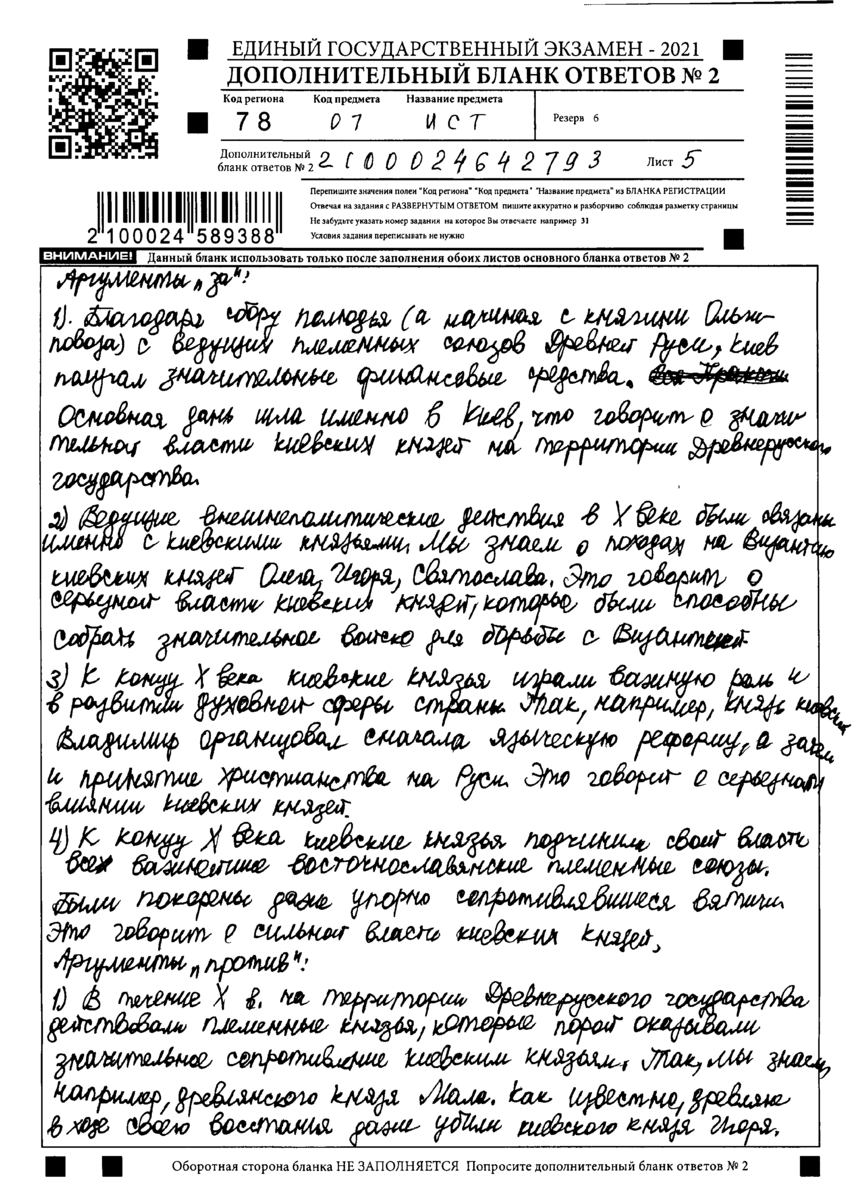 ЕДИНЫЙ ГОСУДАРСТВЕННЫЙ ЭКЗАМЕН - 2021
ДОПОЛНИТЕЛЬНЫЙ БЛАНК ОТВЕТОВ № 2
Код региона Код предмета Название предмета
78 07 ИСТ Резерв 6
Дополнительный
бланк ответов № 2 2100024642793 Лист 5
Перепишите значения полей "Код региона" "Код предмета" "Название предмета" из БЛАНКА РЕГИСТРАЦИИ
Отвечая на задания с РАЗВЕРНУТЫМ ОТВЕТОМ пишите аккуратно и разборчиво соблюдая разметку страницы
Не забудьте указать номер задания на которое Вы отвечаете например 31
Условия задания переписывать не нужно
2 100024 589388
ВНИМАНИЕ! Данный бланк использовать только после заполнения обоих листов основного бланка ответов № 2
Аргументы „за“:
1). Благодаря сбору полюдья (а начиная с княгини Ольги-
повоза) с ведущих племенных союзов Древней Руси, Киев
получал значительные финансовые средства.
Основная дань шла именно в Киев, что говорит о значи
тельной власти киевских князей на территории Древнерусского
государства.
2) Ведущие внешнеполитические действия в X веке были связаны
именно с киевскими князьями. Мы знаем о походах на Византию
киевских князей Олега, Игоря, Святослава. Это говорит о
серьезной власти киевских князей, которые были способны
собрать значительное войско для борьбы с Византией
3) К концу X века киевские князья играли важную роль и
в развитии духовной сферы страны. Так, например, князь киевский
Владимир организовал сначала языческую реформу, а затем
и принятие христианства на Руси. Это говорит о серьезном
влиянии киевских князей.
4) К концу X века киевские князья подчинили своей власти
все важнейшие восточнославянские племенные союзы.
Были покорены даже упорно сопротивлявшиеся вятичи.
Это говорит о сильной власти киевских князей.
Аргументы „против“:
1) В течение X в. на территории Древнерусского государства
действовали племенные князья, которые порой оказывали
значительное сопротивление киевским князьям. Так, мы знаем,
например, древлянского князя Мала. Как известно, древляне
в ходе своего восстания даже убили киевского князя Игоря.
Оборотная сторона бланка НЕ ЗАПОЛНЯЕТСЯ Попросите дополнительный бланк ответов № 2